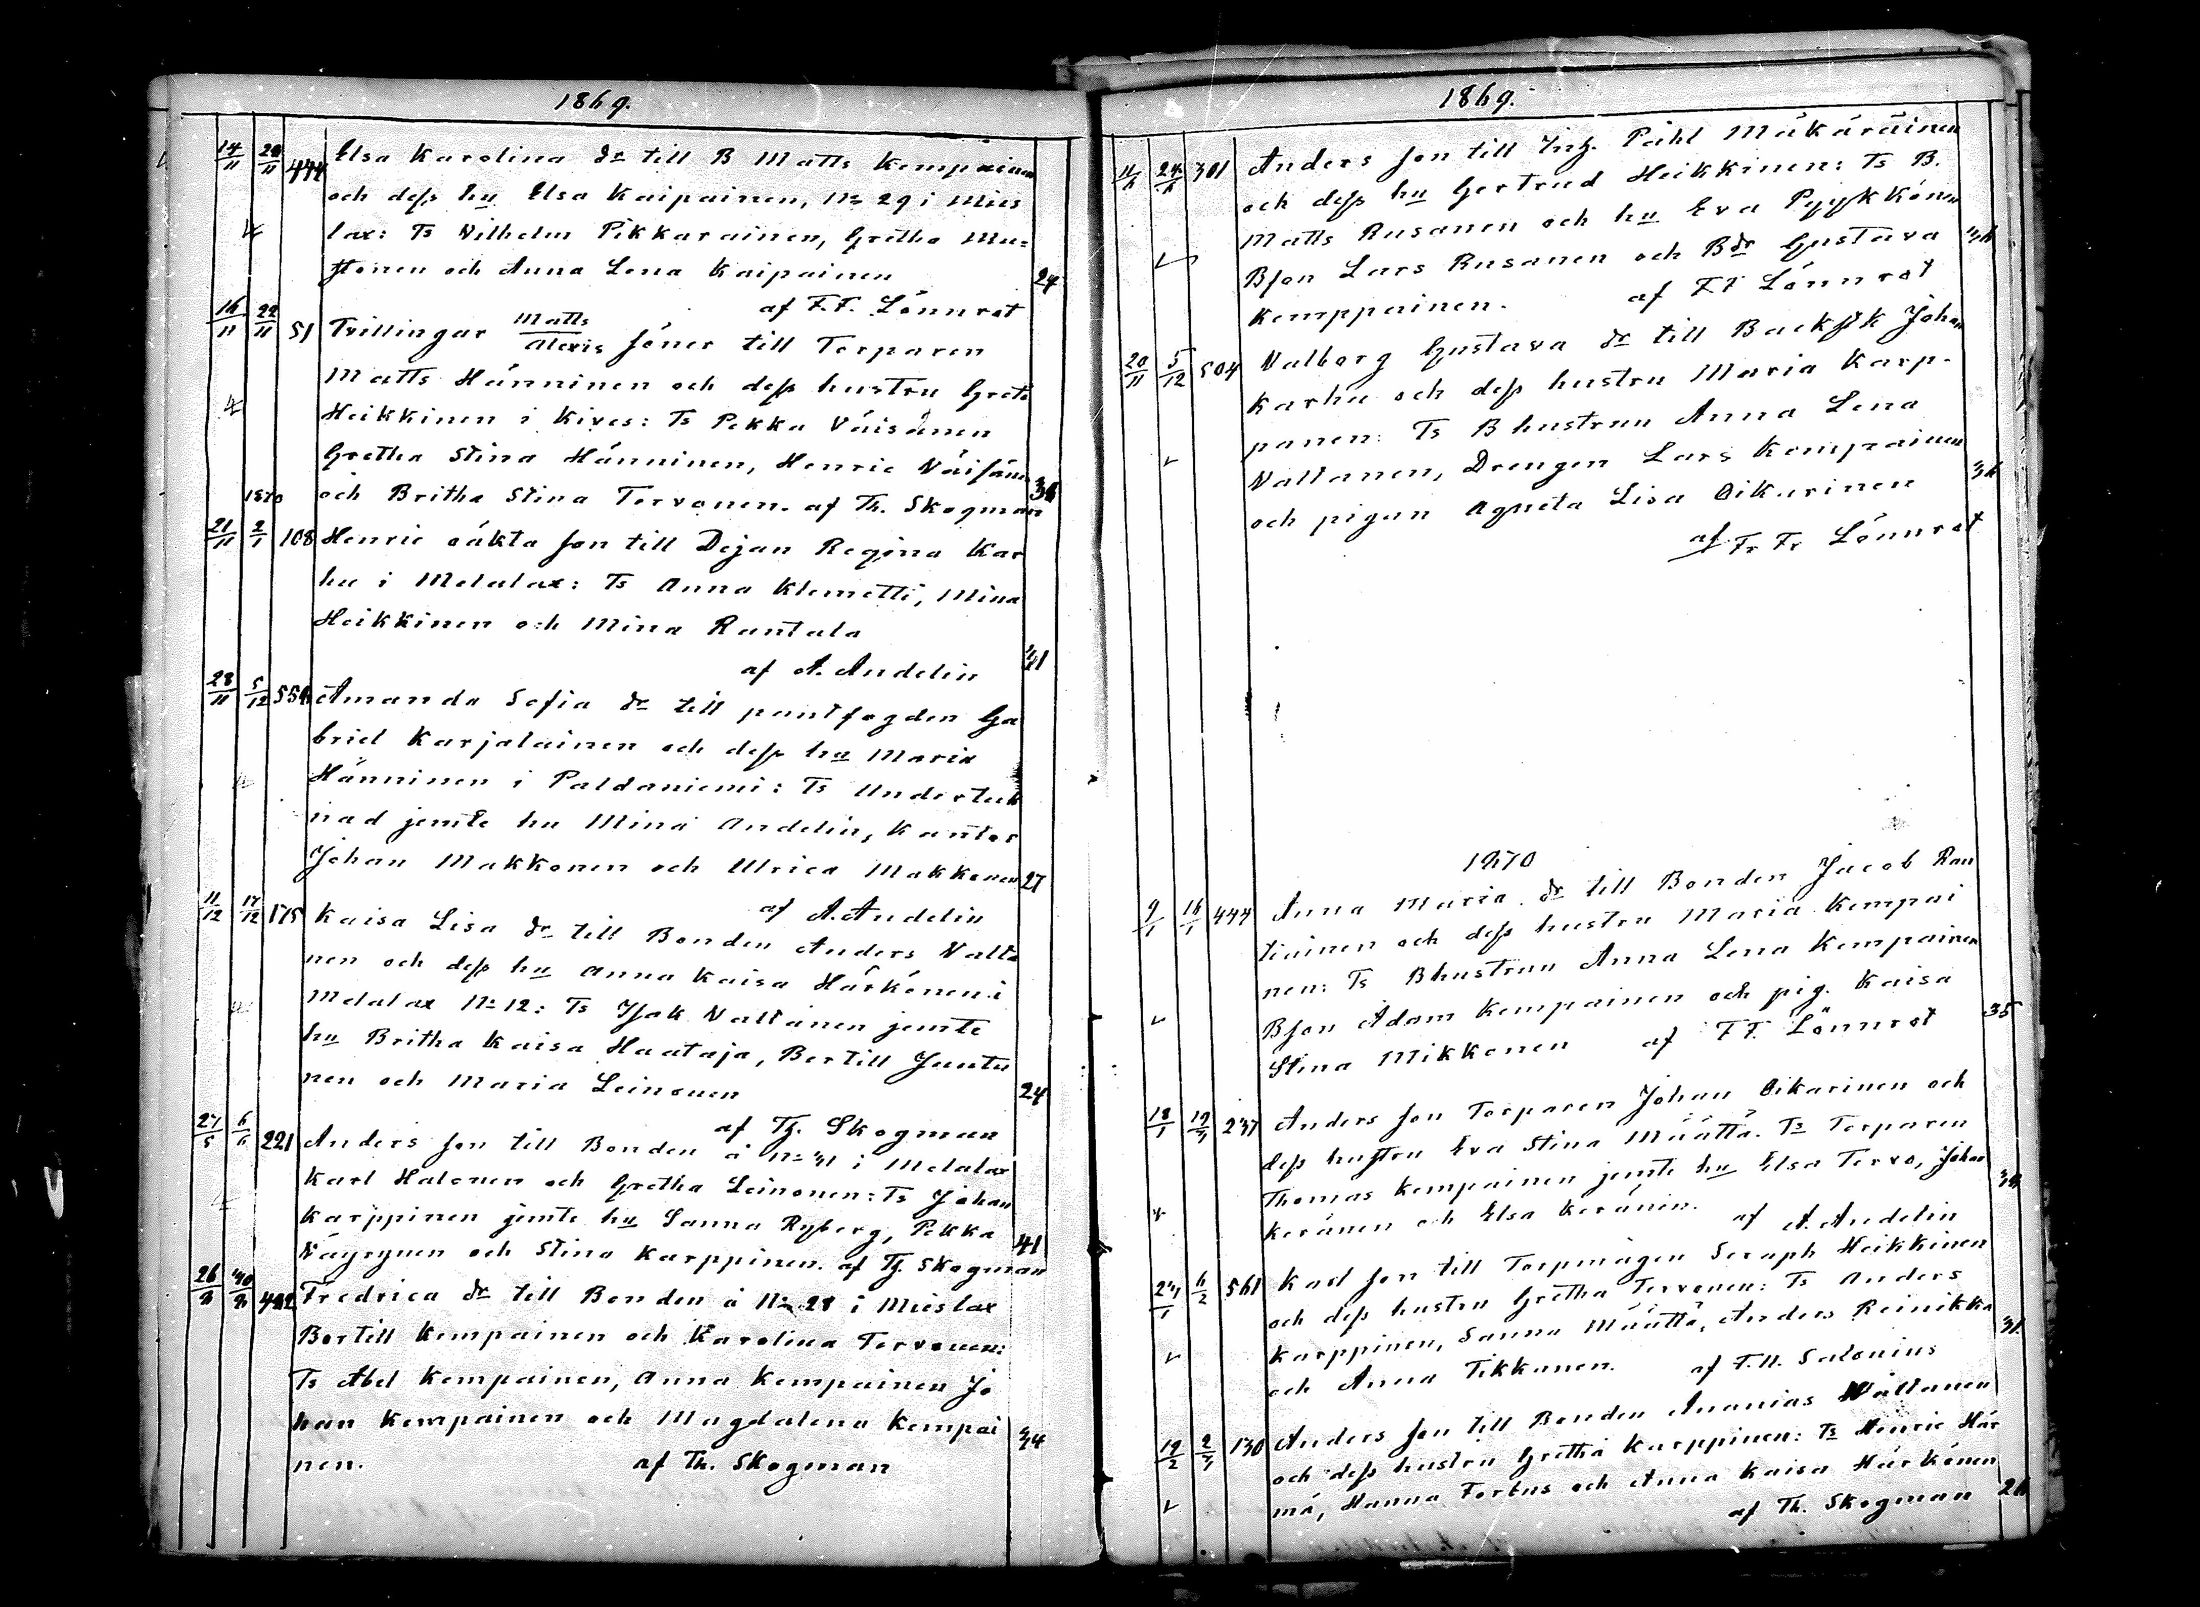 1869.
14/11 20/11 444 Elsa Karolina dr till B Matts Kempainen
och dess hu Elsa Kaipainen, No 29 i Mies
lax: Ts Vilhelm Pikkarainen, Gretha Mu=
stonen och Anna Lena Kaipainen 24
af F.F. Lönnrot
16/11 22/11 51 Tvillingar Matts
Alexis söner till Torparen
Matts Hänninen och dess hustru Greta
Heikkinen i Kives: Ts Pekka Väisänen
Gretha Stina Hänninen, Henric Väisänen
1870 och Britha Stina Tervonen. af Th. Skogman
21/11 2/1 108 Henric oäkta son till Dejan Regina Kar
hu i Melalax: Ts Anna Klemetti, Mina
Heikkinen och Mina Rantala
af A. Andelin
28/11 5/12 Amanda Sofia dr till pantfogden Ga
briel Karjalainen och dess hu Maria
Hänninen i Paldaniemi: Ts Underteck
nad jemte hu Mina Andelin, Kantor
Johan Makkonen och Ulrica Makkonen 27
af A. Andelin
11/12 17/12 175 Kaisa Lisa dr till Bonden Anders Valta
nen och dess hu Anna Kaisa Härkönen i
Melalax No 12: Ts Isak Valtanen jemte
hu Britha Kaisa Haataja, Bertill Juntu
nen och Maria Leinonen 24
af Th. Skogman
27/5 6/6 221 Anders son till Bonden å No 31 i Melalax
Karl Halonen och Gretha Leinonen: Ts Johan
Karppinen jemte hu Sanna Ryberg, Pekka
Väyrynen och Stina Karppinen. af Th Skogman 41
26/8 30/8 442 Fredrica dr till Bonden å No 28 i Mieslax
Bertill Kempainen och Karolina Tervonen:
Ts Abel Kempainen, Anna Kempainen Jo
han Kempainen och Magdalena Kempai
nen. af Th. Skogman 34
1869.
11/6 24/6 301 Anders son till Inh. Påhl Mäkäräinen
och dess hu Gertrud Heikkinen: Ts B.
Matts Rusanen och hu Eva Pyykkönen
Bson Lars Rusanen och Bdr Gustava 36
Kemppainen. af F.F Lönnrot
20/11 5/12 504 Valborg Gustava dr till Backstk Johan
Karhu och dess hustru Maria Karp-
panen: Ts B hustrun Anna Lena
Valtanen, Drengen Lars Kempainen
och pigan Agneta Lisa Oikarinen 36
af Fr Fr Lönnrot
1870
9/1 16/1 444 Anna Maria dr till Bonden Jacob Ran
tiainen och dess hustru Maria Kempai
nen: Ts Bhustrun Anna Lena Kempainen
Bson Adam Kempainen och pig. Kaisa
Stina Mikkonen af F.F. Lönnrot 35
18/1 237 Anders son Torparen Johan Oikarinen och
dess hustru Eva Stina Määttä. Ts Torparen
Thomas Kempainen jemte hu Elsa Tervo, Johan
Keränen och Elsa Keränen. af A. Andelin
6/2 561 Karl son till Torpmågen Seraph Heikkinen
och dess hustru Gretha Tervonen: Ts Anders
Karppinen, Sanna Määttä, Anders Reinikka
och Anna Tikkanen. af F.H. Salonius 31.
19/2 2/3 130 Anders son till Bonden Ananias Valtanen
och dess hustru Gretha Karppinen: Ts Henric Här
mä, Hanna Fortus och Anna Kaisa Härkönen
af Th. Skogman 26